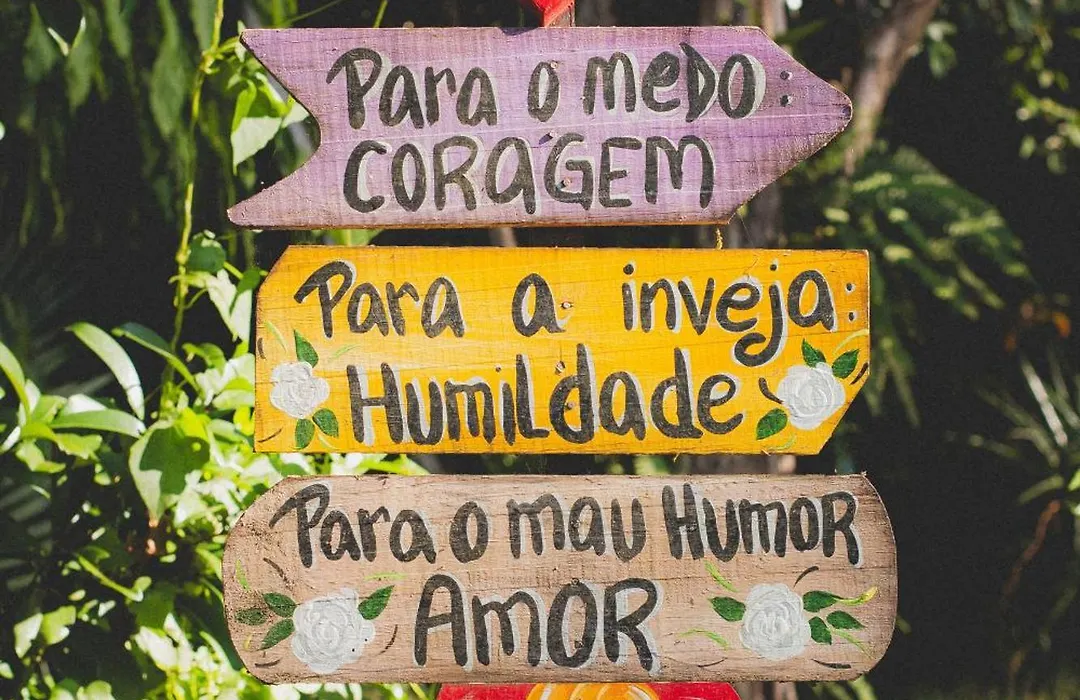 Para o meDo:
CORAGEM
Para a inveja:
HumiLdade
Para o mau HumoR
AmoR